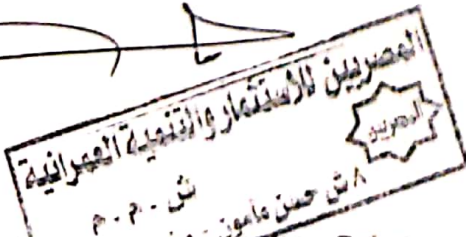 المصريين للاستثمار والتنمية العمرانية
المصريين
ش - م - م
٨ ش حسن مأمون -